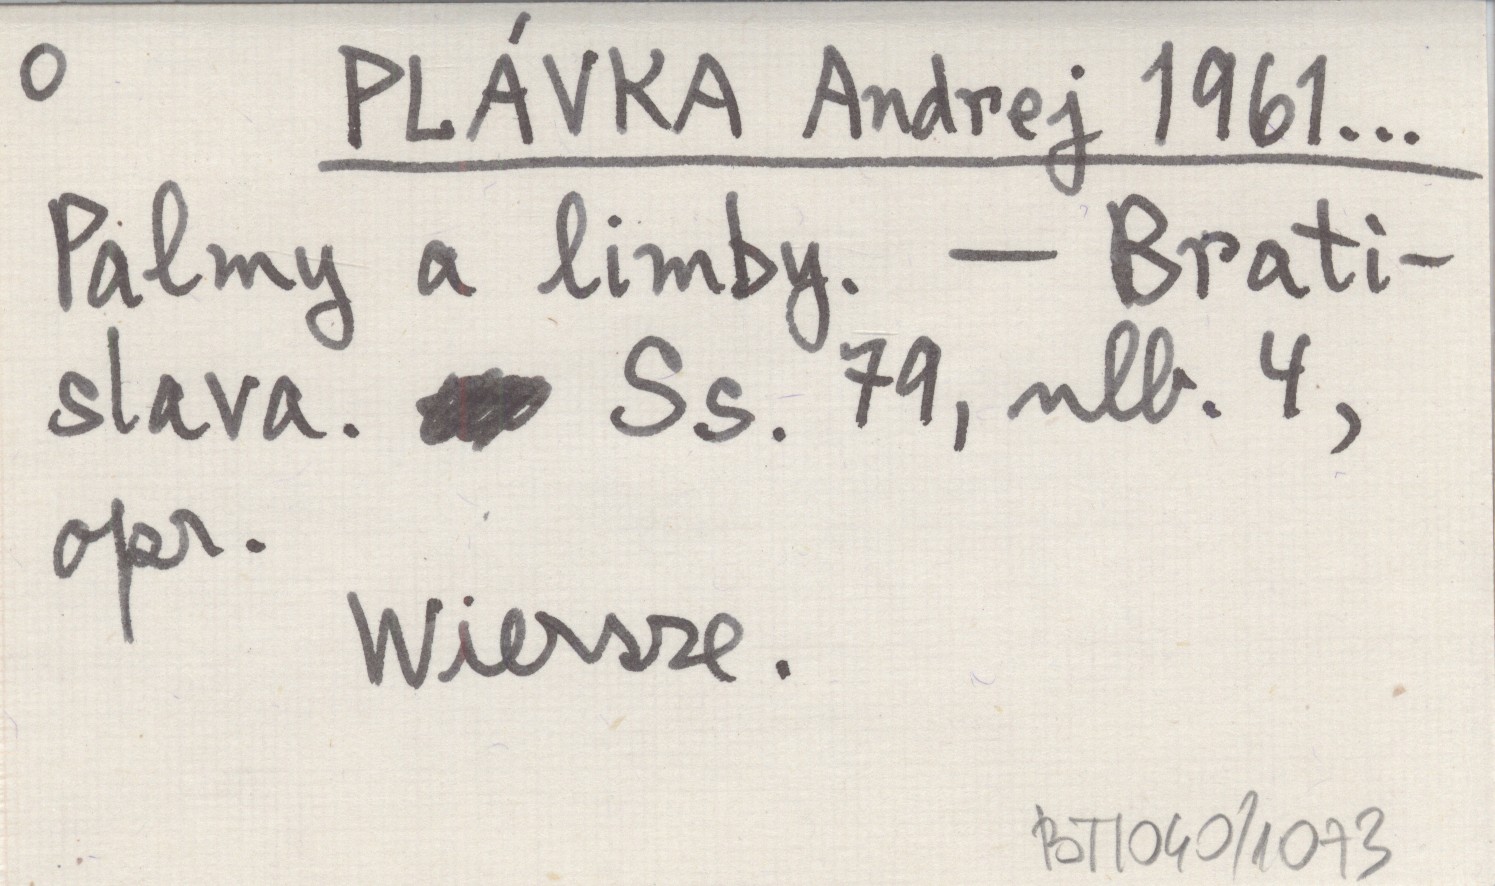 O PLÁVKA Andrej 1961...
Palmy a limby. — Brati-
slava. Ss. 79, nlb. 4,
opr.
Wiersze.
BT1040/1073